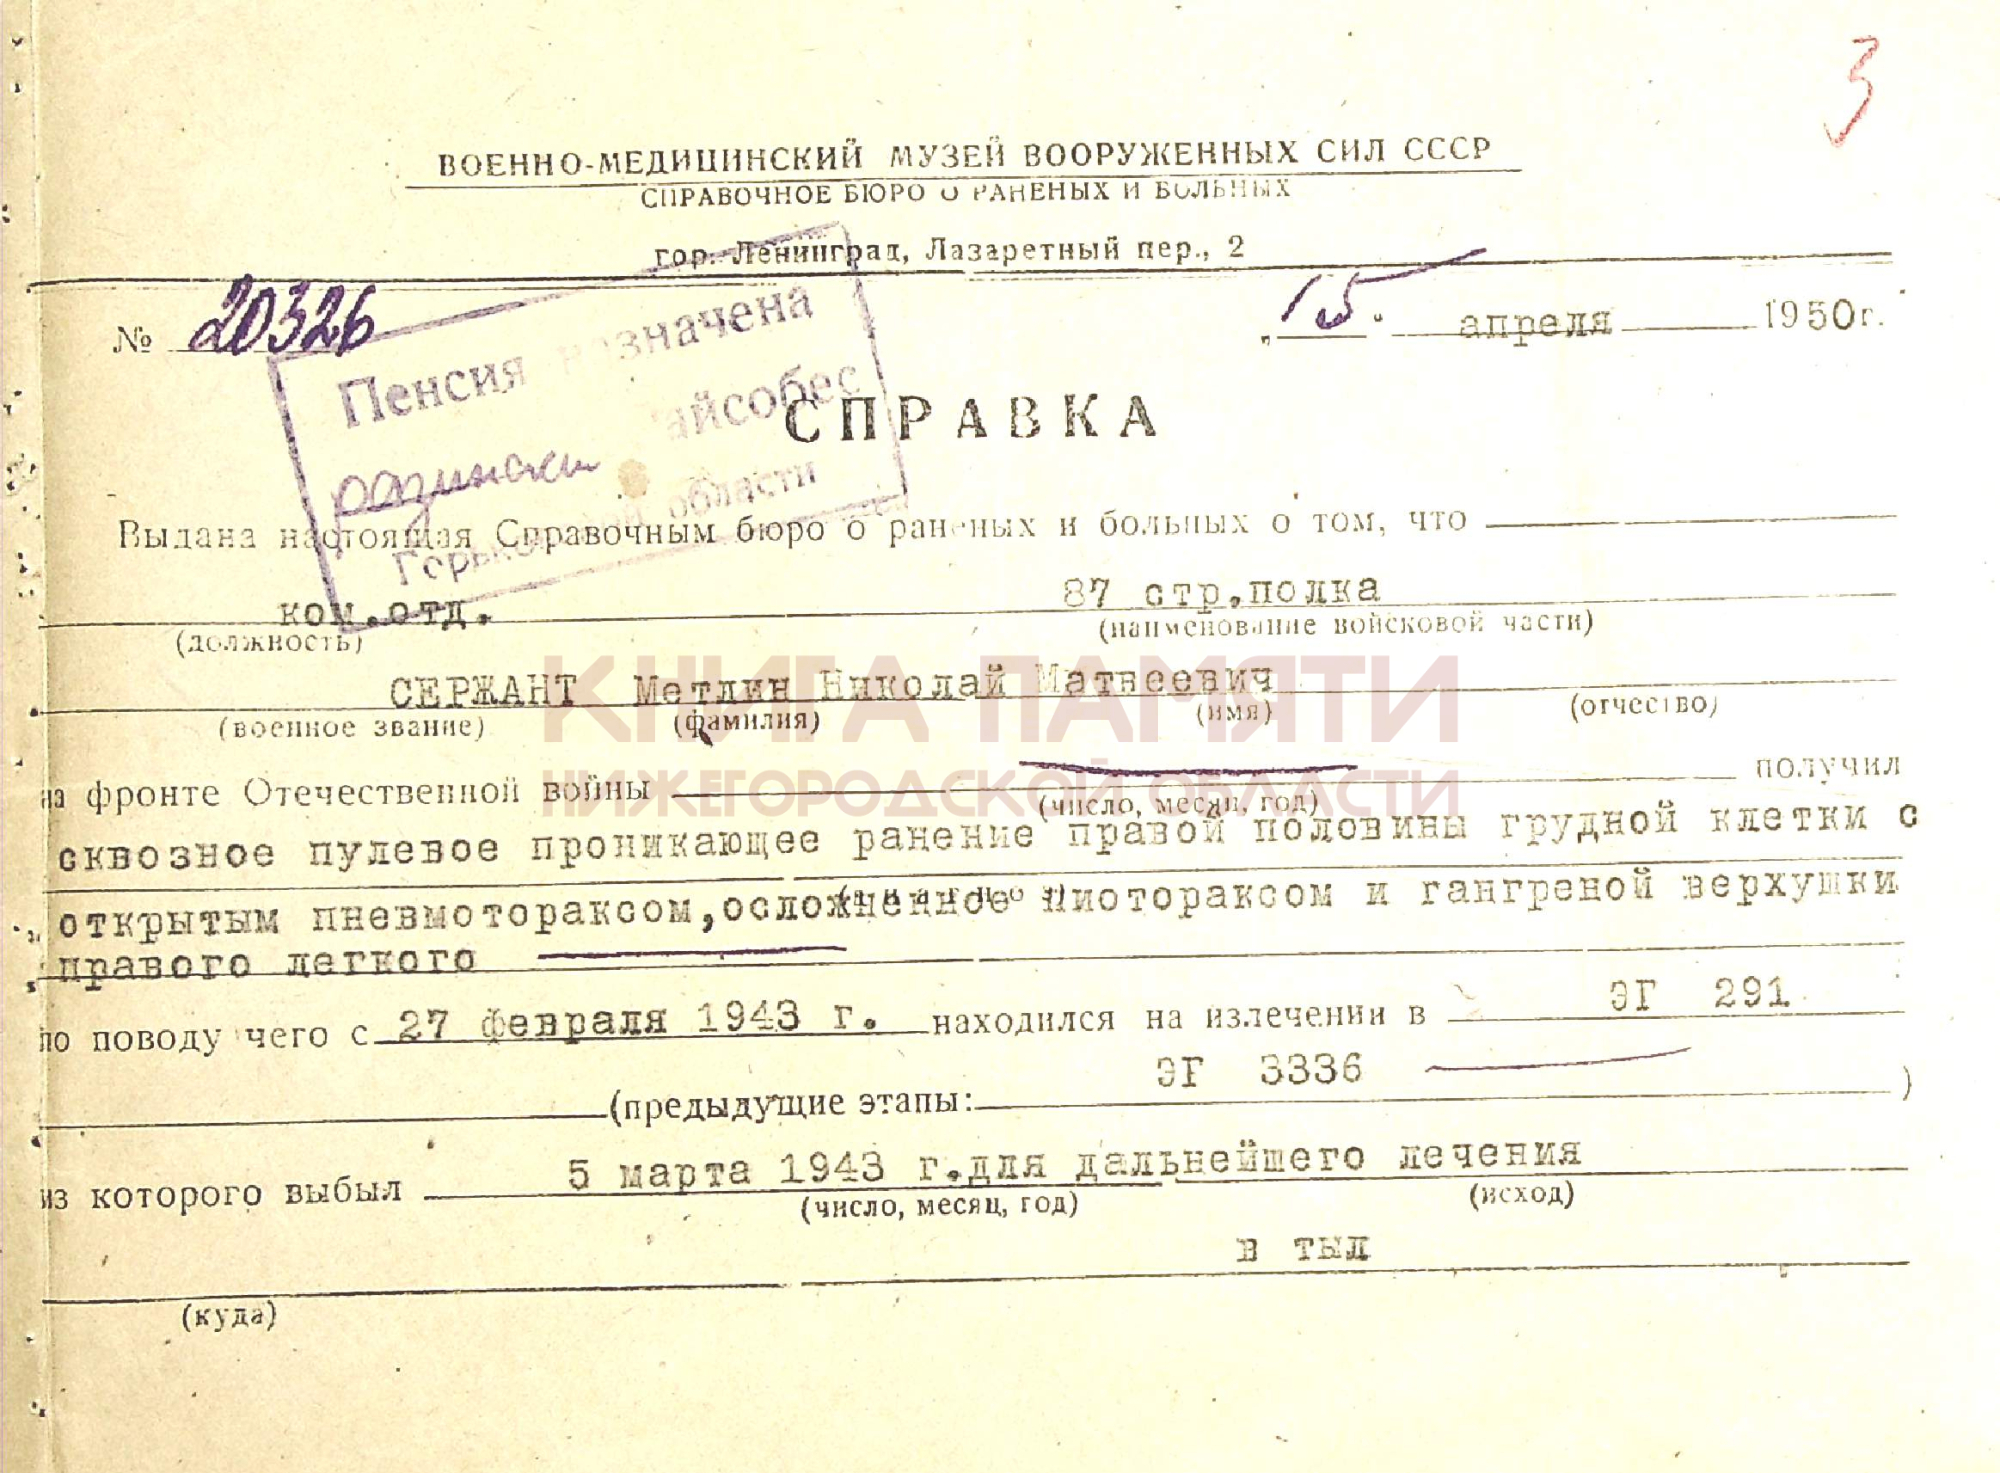 3
ВОЕННО-МЕДИЦИНСКИЙ МУЗЕЙ ВООРУЖЕННЫХ СИЛ СССР
СПРАВОЧНОЕ БЮРО О РАНЕНЫХ И БОЛЬНЫХ
гор. Ленинград, Лазаретный пер., 2
№ 20326
„15. апреля 1950г.
Пенсия назначена
райсобес
области
СПРАВКА
Выдана настоящая Справочным бюро о раненых и больных о том, что
ком.отд. 87 стр.полка
(должность) (наименование войсковой части)
СЕРЖАНТ Метлин Николай Матвеевич
(военное звание) (фамилия) (имя) (отчество)
КНИГА ПАМЯТИ
НИЖЕГОРОДСКОЙ ОБЛАСТИ
на фронте Отечественной войны получил
(число, месяц, год)
сквозное пулевое проникающее ранение правой половины грудной клетки с
открытым пневмотораксом, осложненное пиотораксом и гангреной верхушки
правого легкого
по поводу чего с 27 февраля 1943 г. находился на излечении в ЭГ 291
(предыдущие этапы: ЭГ 3336 )
из которого выбыл 5 марта 1943 г.для дальнейшего лечения
(число, месяц, год) (исход)
в тыл
(куда)